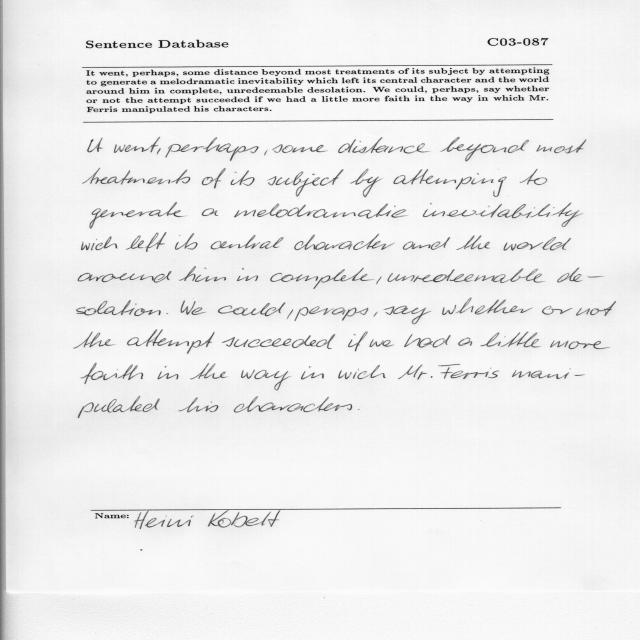 Sentence Database C03-087
It went, perhaps, some distance beyond most treatments of its subject by attempting
to generate a melodramatic inevitability which left its central character and the world
around him in complete, unredeemable desolation. We could, perhaps, say whether
or not the attempt succeeded if we had a little more faith in the way in which Mr.
Ferris manipulated his characters.
It went, perhaps, some distance beyond most
treatments of its subject by attemping to
generate a melodramatic inevitability
wich left its central character and the world
around him in complete, unredeemable de-
solation. We could, peraps, say whether or not
the attempt succeeded if we had a little more
faith in the way in wich Mr. Ferris mani-
pulated his characters.
Name: Heini Kobelt